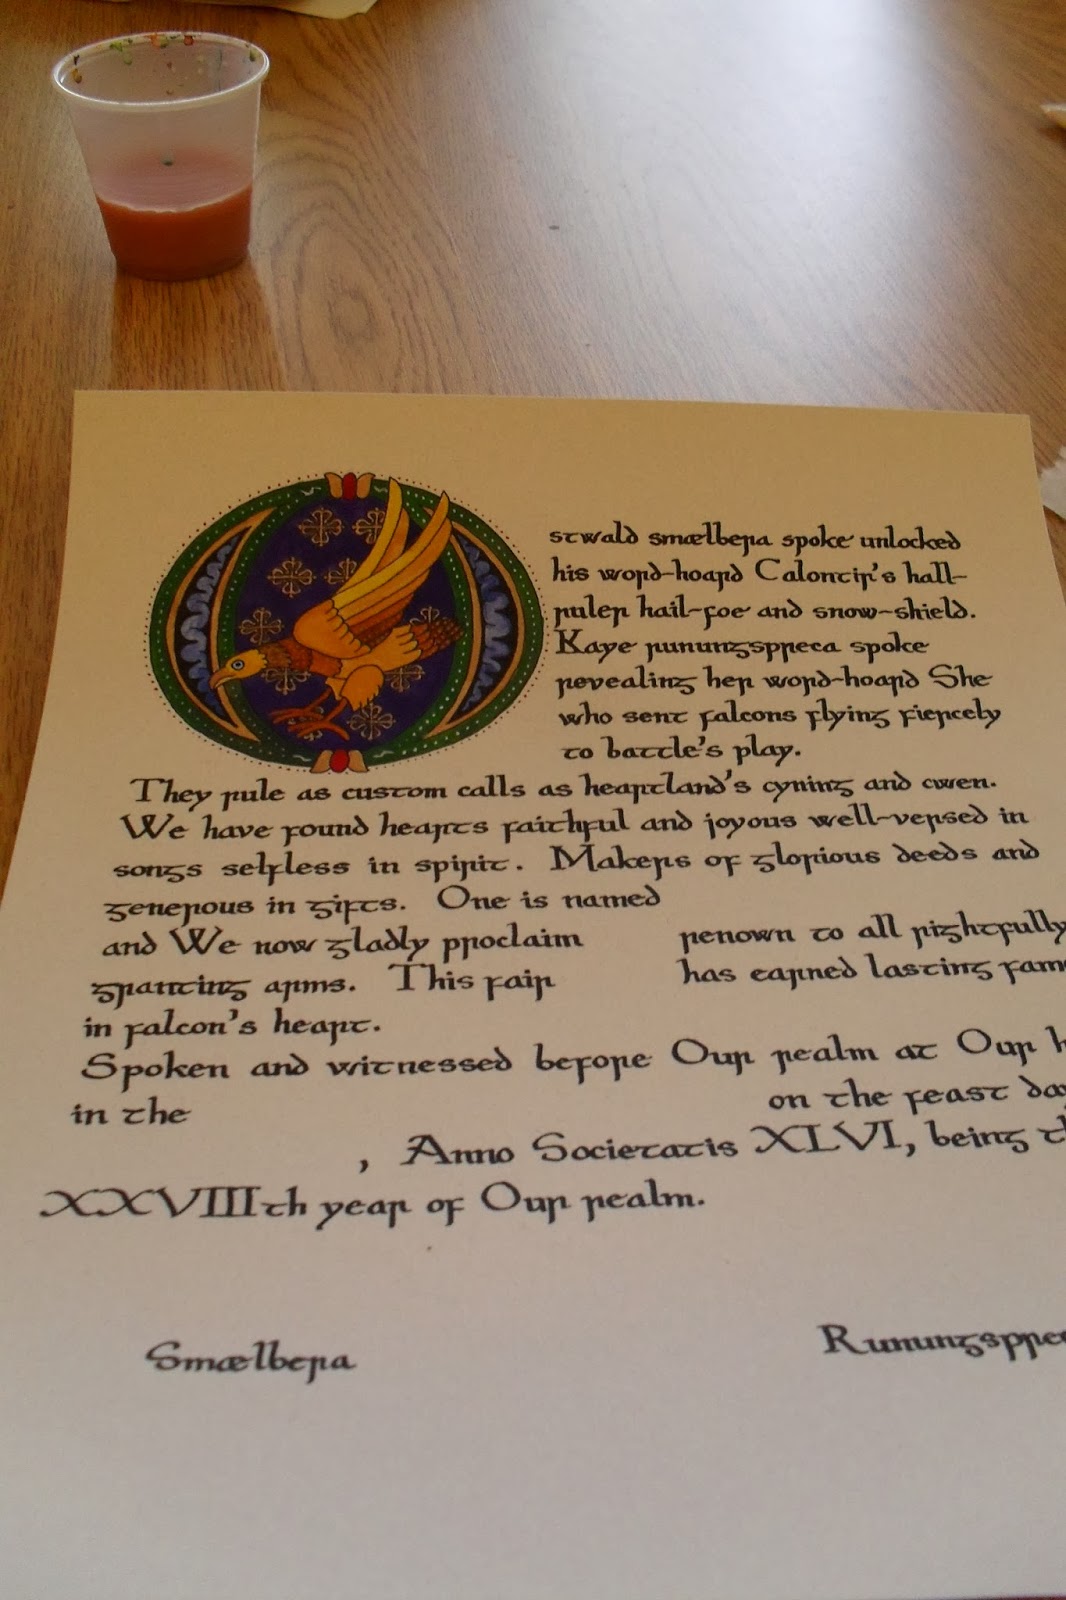 Ostwald smælbera spoke unlocked
his word-hoard Calontir's hall-
ruler hail-foe and snow-shield.
Kaye runungsprreca spoke
revealing her word-hoard She
who sent falcons flying fiercely
to battle's play.
They rule as custom calls as heartland's cyning and cwen.
We have found hearts faithful and joyous well-versed in
songs selfless in spirit. Makers of glorious deeds and
generous in gifts. One is named
and We now gladly proclaim renown to all rightfully
granting arms. This fair has earned lasting fam
in falcon's heart.
Spoken and witnessed before Our realm at Our h
in the on the feast day
, Anno Societatis XLVI, being th
XXVIIIth year of Our realm.
Smælbera Runungsprrec